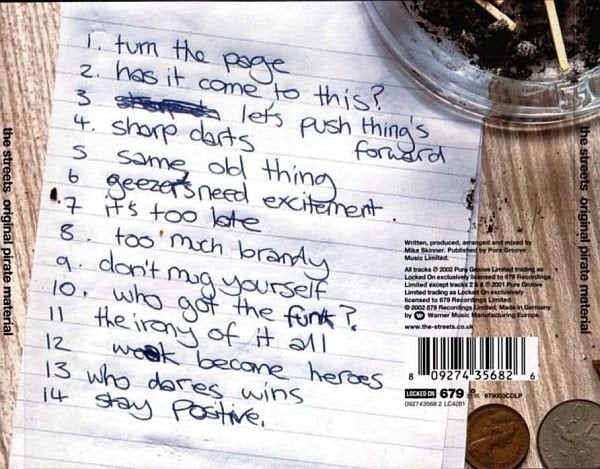 1. turn the page
2. has it come to this?
3 let's push thing's
forward
4. sharp darts
5 same old thing
6 geezers need excitement
7 it's too late
8. too much brandy
9. don't mug yourself
10. who got the funk?
11 the irony of it all
12 weak become heroes
13 who dares wins
14 stay positive.
the streets original pirate material
the streets original pirate material
Written, produced, arranged and mixed by
Mike Skinner. Published by Pure Groove
Music Limited.
All tracks ℗ 2002 Pure Groove Limited trading as
Locked On exclusively licensed to 679 Recordings
Limited except tracks 2 & 6 ℗ 2001 Pure Groove
Limited trading as Locked On exclusively
licensed to 679 Recordings Limited.
© 2002 679 Recordings Limited. Made in Germany
by Warner Music Manufacturing Europe.
www.the-streets.co.uk
8 09274 35682 6
LOCKED ON 679 679003CDLP
092743568 2 LC4281